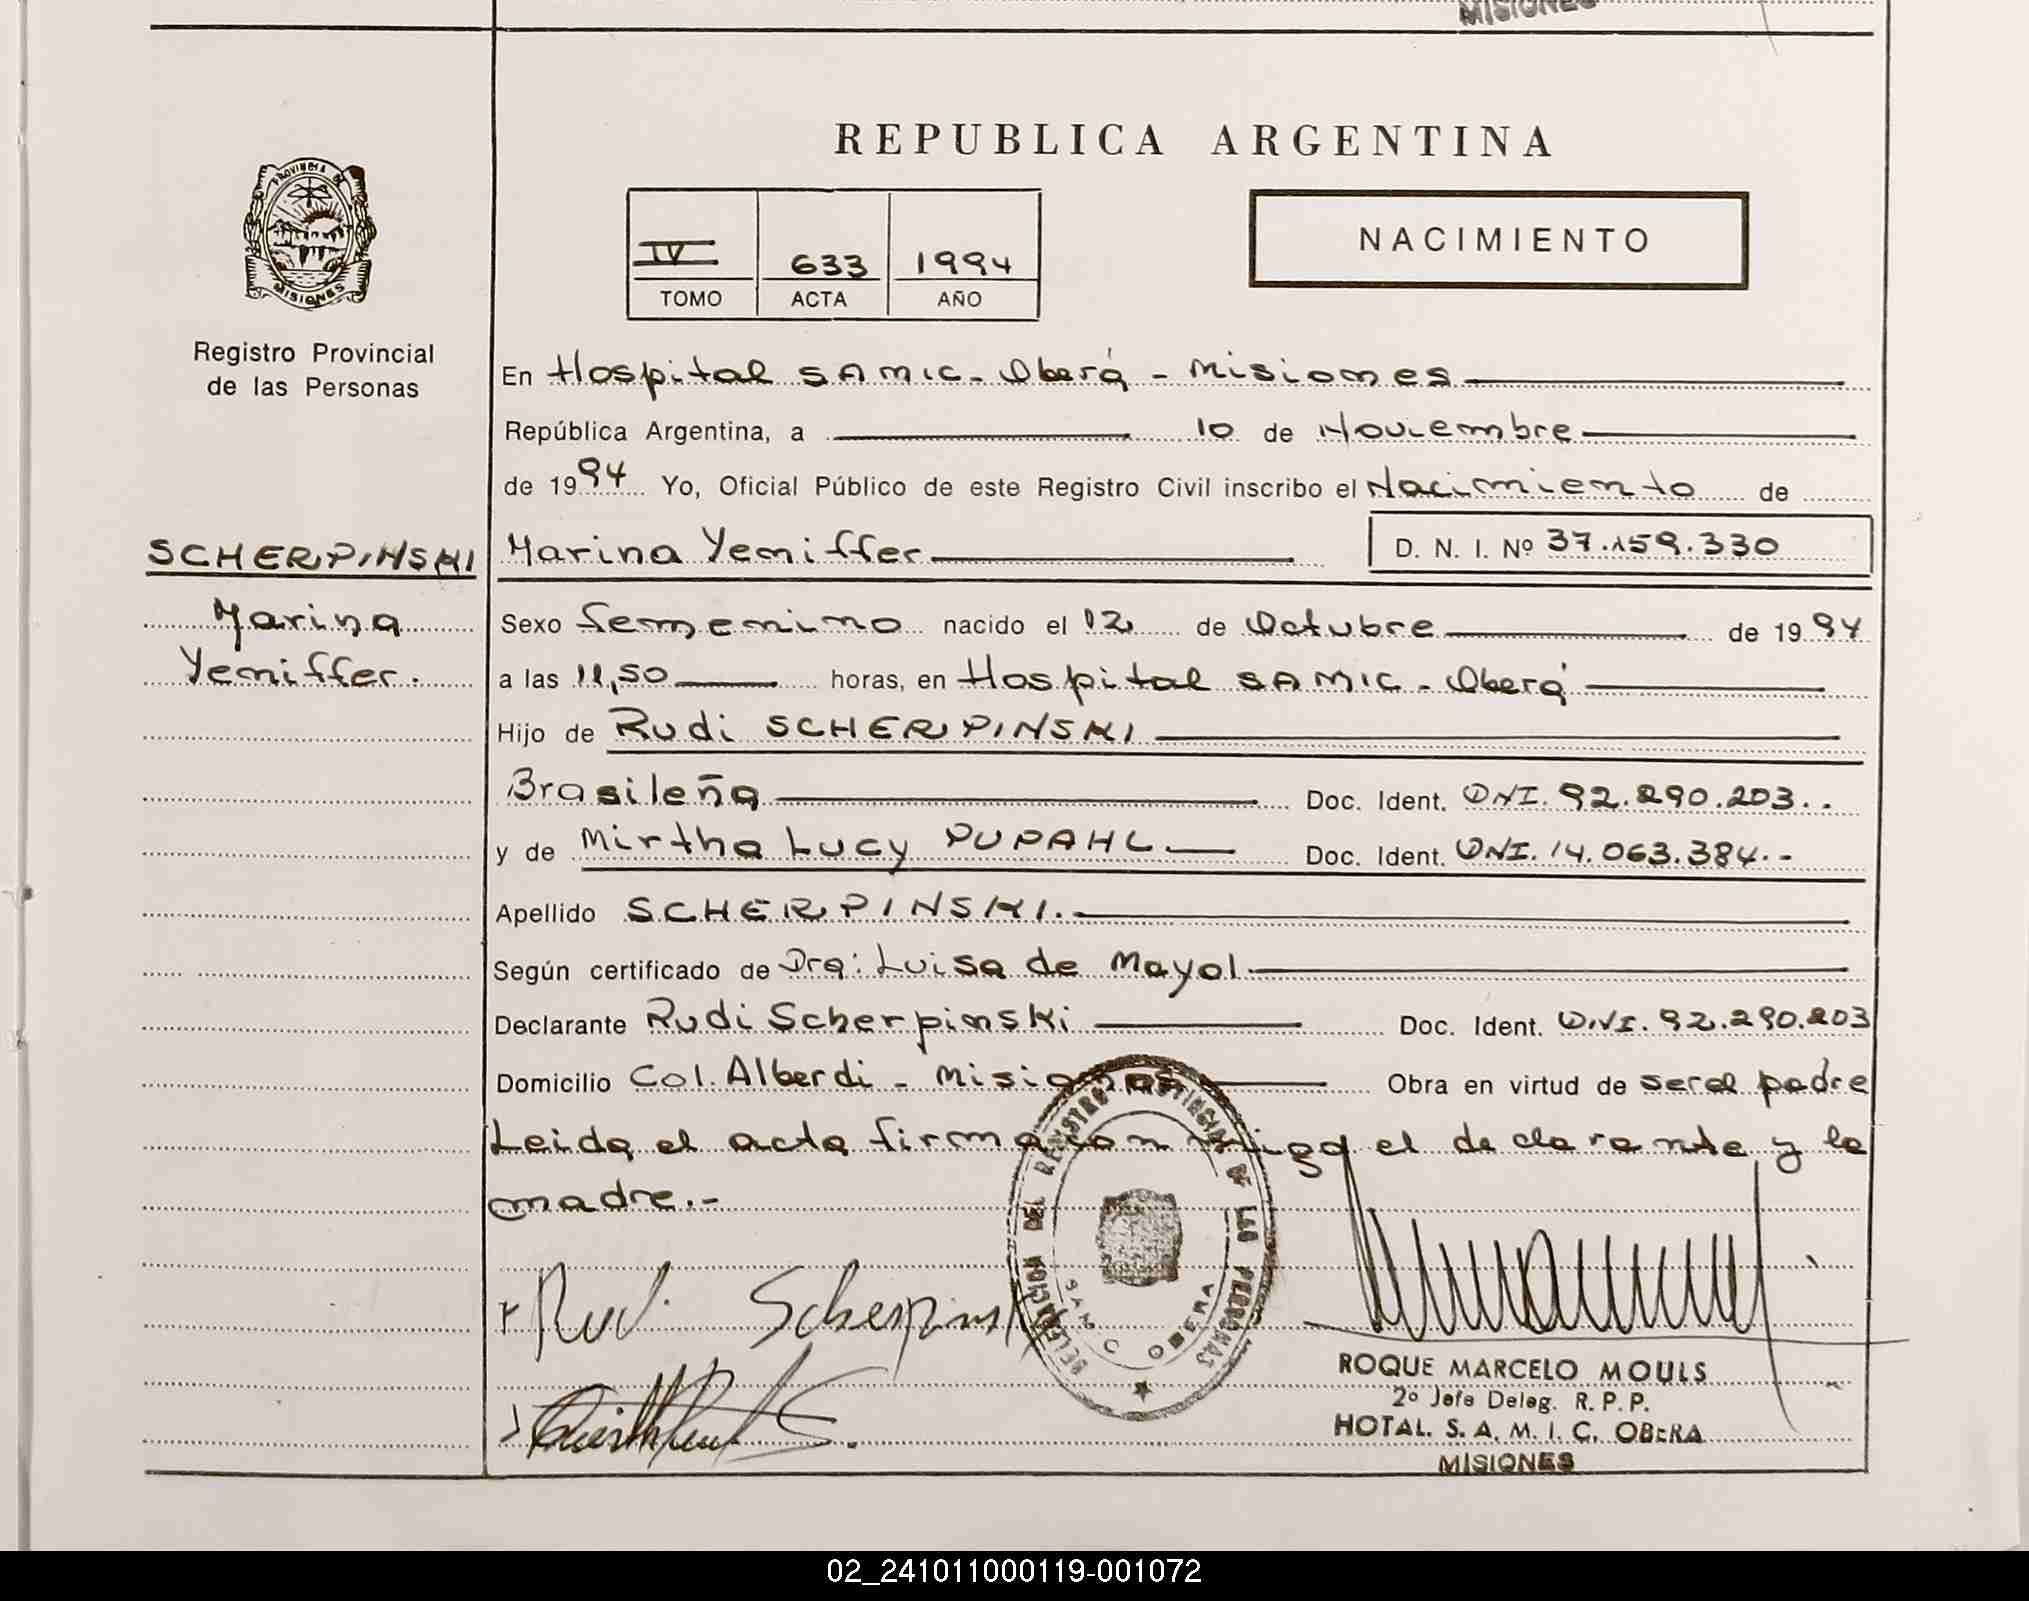 MISIONES
REPUBLICA ARGENTINA
PROVINCIA DE
MISIONES
Registro Provincial
de las Personas
IV 633 1994
TOMO ACTA AÑO
NACIMIENTO
En Hospital SAMIC - Oberá - Misiones
República Argentina, a 10 de Noviembre
de 1994 Yo, Oficial Público de este Registro Civil inscribo el Nacimiento de
SCHERPINSKI
Marina Yeniffer D. N. I. Nº 37.159.330
Marina
Yeniffer.
Sexo femenino nacido el 12 de Octubre de 1994
a las 11,50 horas, en Hospital SAMIC - Oberá
Hijo de Rudi SCHERPINSKI
Brasileña Doc. Ident. DNI. 92.290.203..
y de Mirtha Lucy PUPAHL Doc. Ident. DNI. 14.063.384.-
Apellido SCHERPINSKI.
Según certificado de Dra: Luisa de Mayol
Declarante Rudi Scherpinski Doc. Ident. DNI. 92.290.203
Domicilio Col. Alberdi - Misiones Obra en virtud de ser el padre
Leida el acta firma con migo el declarante y la
madre.-
DELEGACION DEL REGISTRO PROVINCIAL DE LAS PERSONAS
SAMIC OBERA
Rudi Scherpinski
ROQUE MARCELO MOULS
2º Jefe Deleg. R. P. P.
HOTAL. S. A. M. I. C. OBERA
MISIONES
02_241011000119-001072